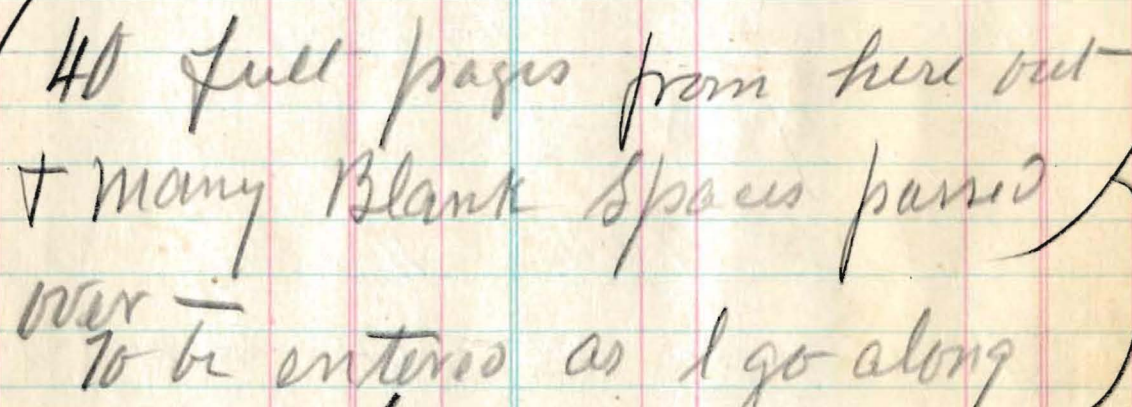 40 full pages from here out
+ many Blank Spaces passed
over —
To be entered as I go along